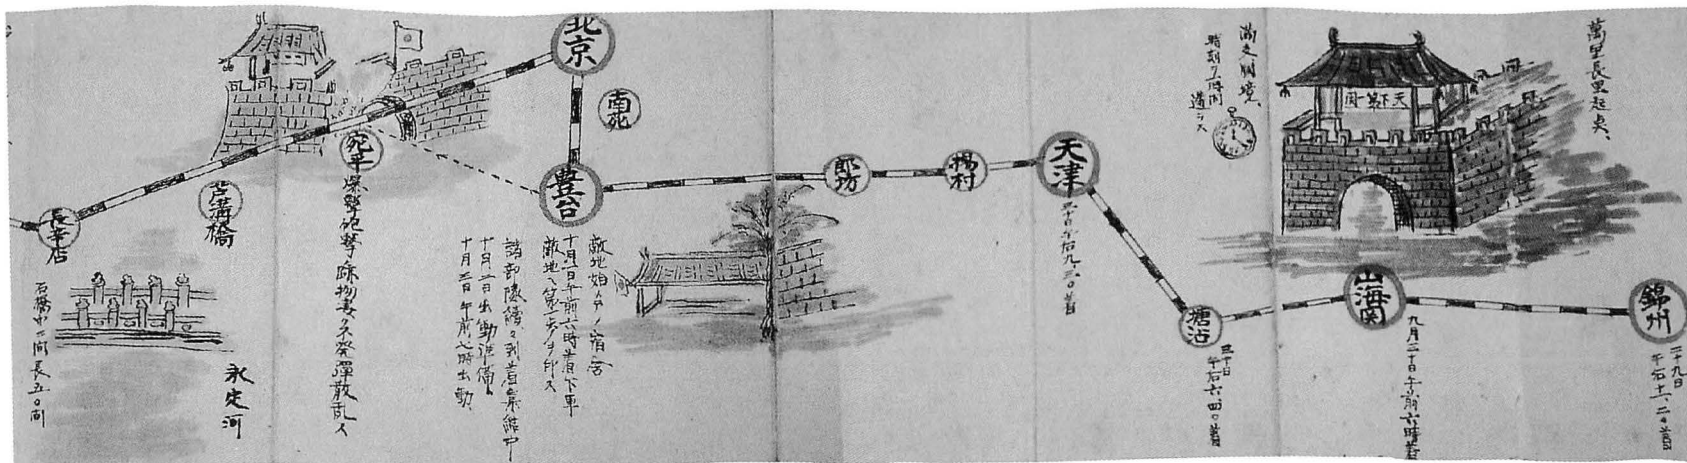 萬里長里起点、
天下第一関
満支國境、
時刻ヲ一時間
遅ラス
錦州
二十九日
午后十一、二〇着
山海関
九月三十日午前六時着
塘沽
三十日
午后六、四〇着
天津
三十日午后九、三〇着
楊村
郎坊
北京
南苑
豊台
敵地始メテノ宿舎
十月一日午前六時着下車
敵地ヘ第一歩ヲ印ス
諸部隊續々到着集結中
十月二日出動準備
十月三日午前七時出動
宛平
爆撃砲撃ノ跡物凄ク不発弾散乱ス
芦溝橋
長辛店
永定河
石橋巾二間長五〇間